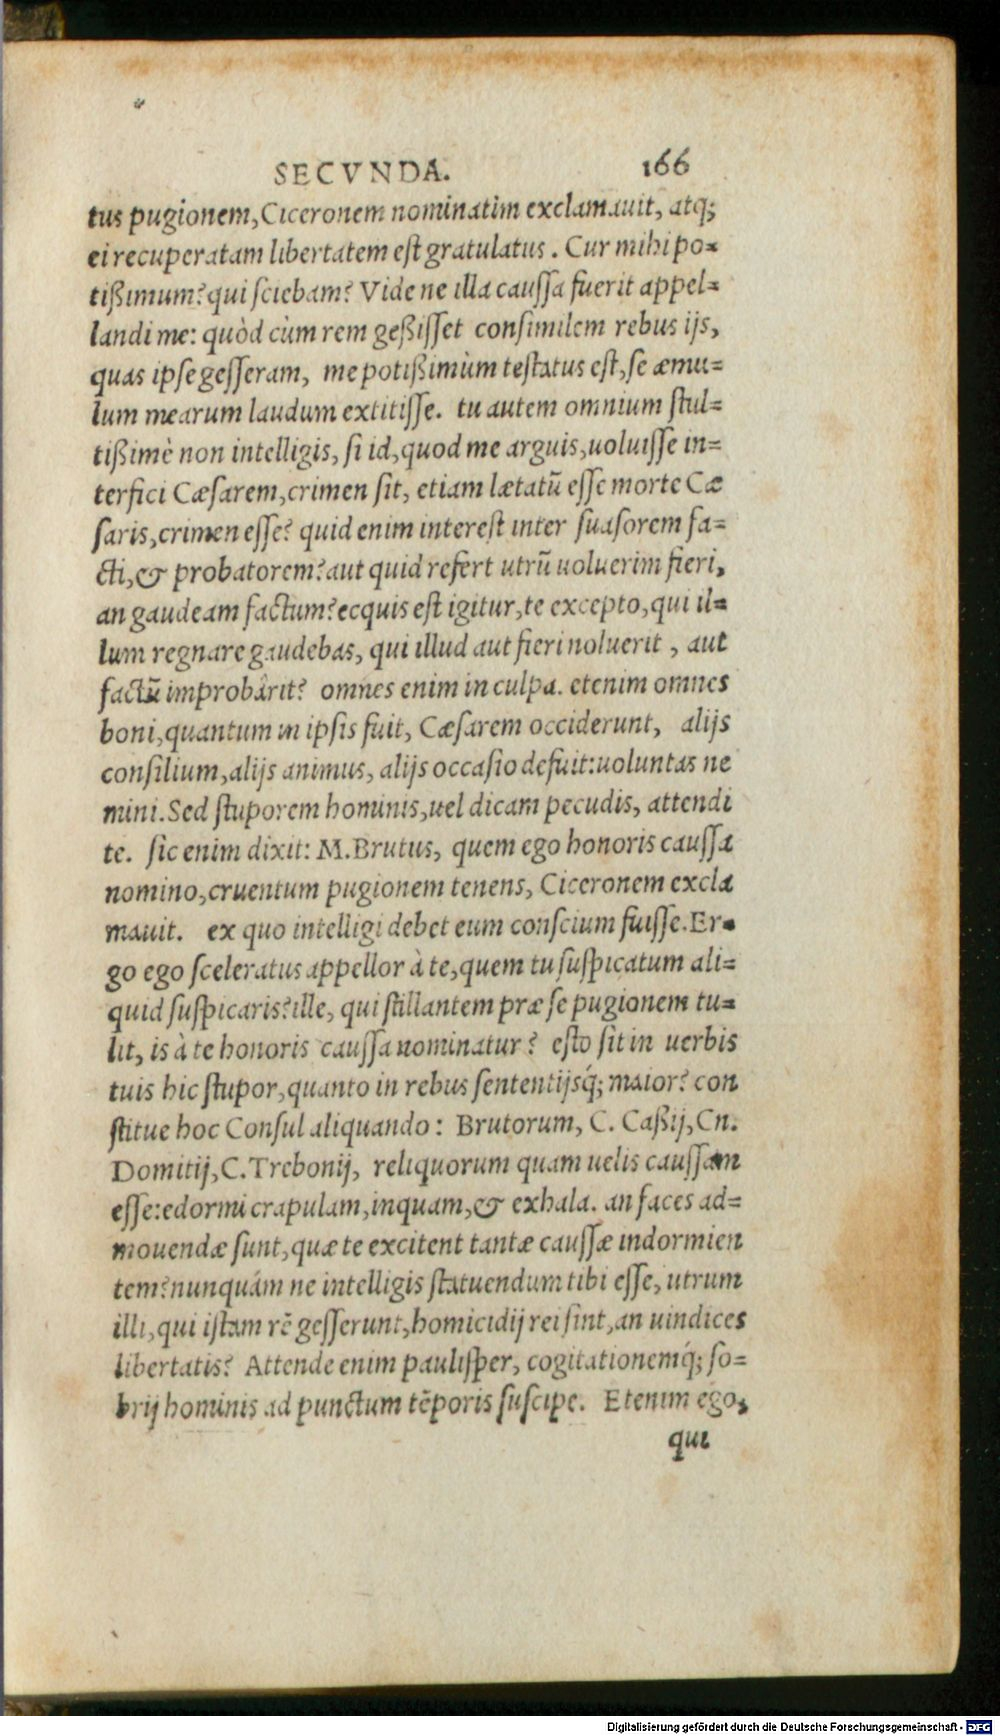 SECVNDA. 166
tus pugionem, Ciceronem nominatim exclamauit, atq;
ei recuperatam libertatem est gratulatus. Cur mihi po-
tißimum? qui sciebam? Vide ne illa caussa fuerit appel-
landi me: quòd cùm rem geßisset consimilem rebus ijs,
quas ipse gesseram, me potißimùm testatus est, se æmu-
lum mearum laudum extitisse. tu autem omnium stul-
tißimè non intelligis, si id, quod me arguis, uoluisse in-
terfici Cæsarem, crimen sit, etiam lætatũ esse morte Cæ
saris, crimen esse? quid enim interest inter suasorem fa-
cti, & probatorem? aut quid refert utrũ uoluerim fieri,
an gaudeam factum? ecquis est igitur, te excepto, qui il-
lum regnare gaudebas, qui illud aut fieri noluerit, aut
factũ improbârit? omnes enim in culpa. etenim omnes
boni, quantum in ipsis fuit, Cæsarem occiderunt, alijs
consilium, alijs animus, alijs occasio defuit: uoluntas ne
mini. Sed stuporem hominis, uel dicam pecudis, attendi
te. sic enim dixit: M. Brutus, quem ego honoris caussa
nomino, cruentum pugionem tenens, Ciceronem excla
mauit. ex quo intelligi debet eum conscium fuisse. Er-
go ego sceleratus appellor à te, quem tu suspicatum ali-
quid suspicaris? ille, qui stillantem præ se pugionem tu-
lit, is à te honoris caussa nominatur? esto sit in uerbis
tuis hic stupor, quanto in rebus sententijsq́; maior? con
stitue hoc Consul aliquando: Brutorum, C. Caßij, Cn.
Domitij, C. Trebonij, reliquorum quam uelis caussam
esse: edormi crapulam, inquam, & exhala. an faces ad-
mouendæ sunt, quæ te excitent tantæ caussæ indormien
tem? nunquám ne intelligis statuendum tibi esse, utrum
illi, qui istam rẽ gesserunt, homicidij rei sint, an uindices
libertatis? Attende enim paulisper, cogitationemq́; so-
brij hominis ad punctum tẽporis suscipe. Etenim ego,
qui
Digitalisierung gefördert durch die Deutsche Forschungsgemeinschaft - DFG